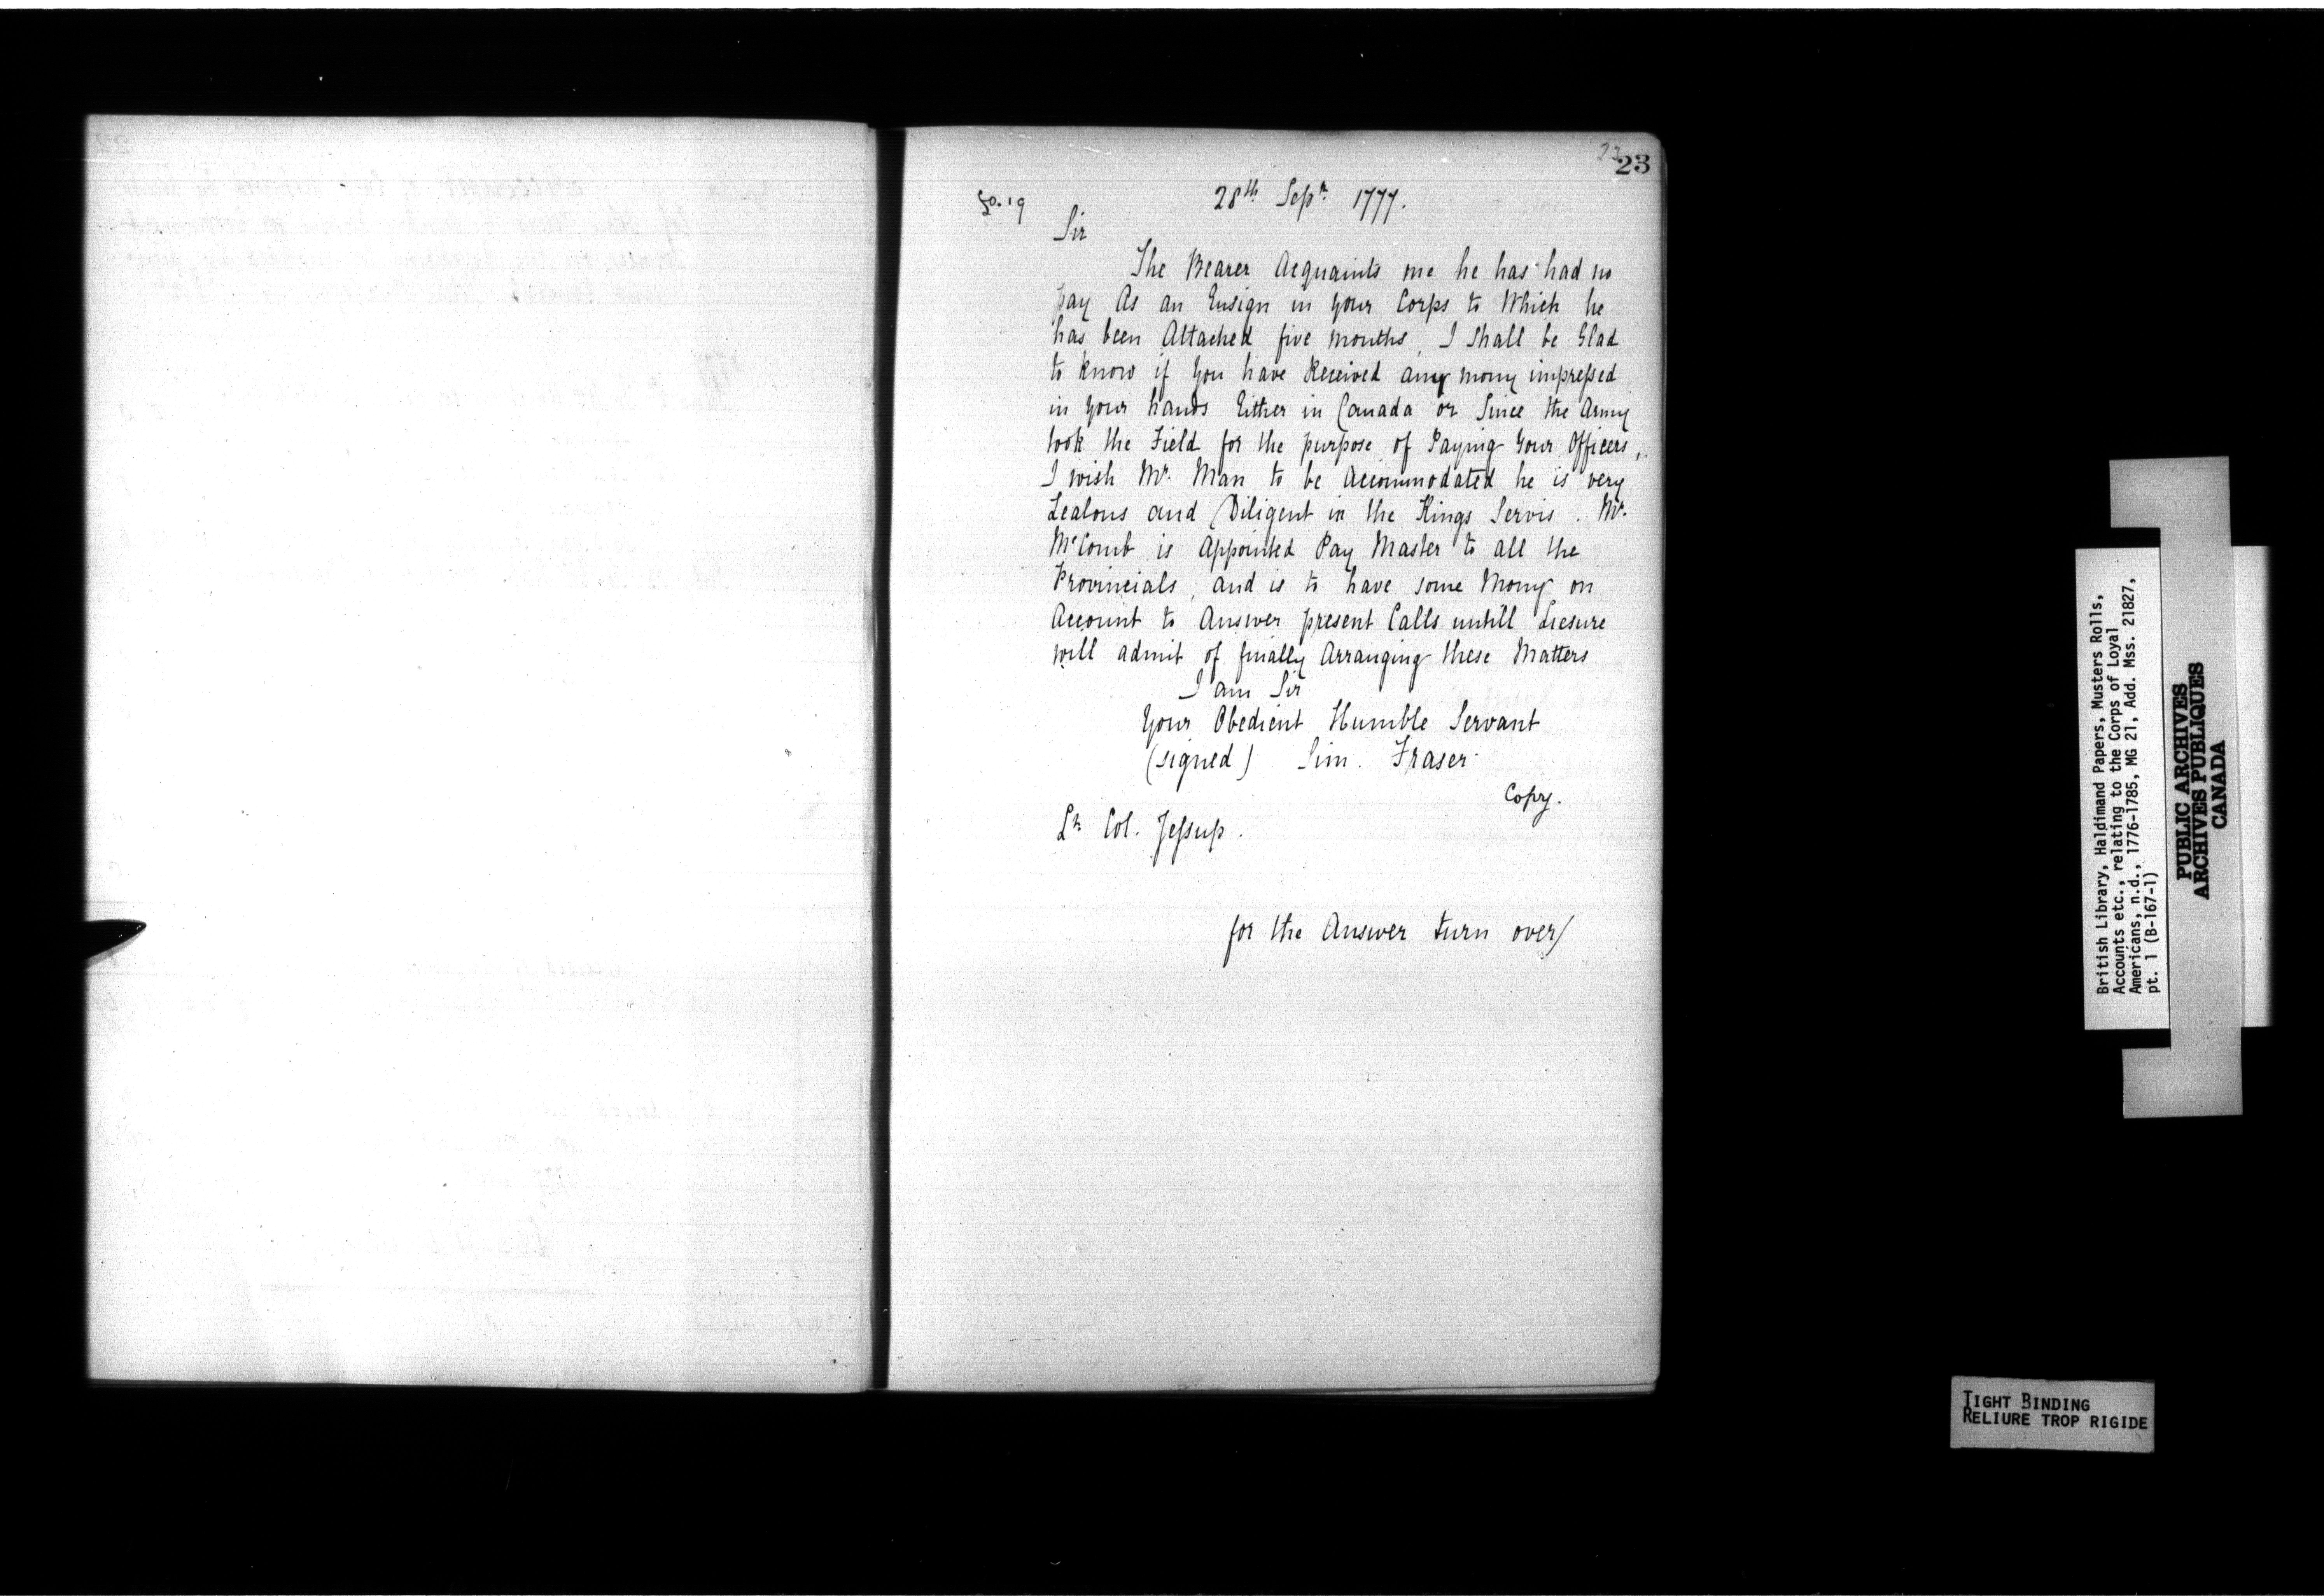 23
23
fo. 19
28th Sepr. 1777.
Sir
The Bearer Acquaints me he has had no
pay As an Ensign in your Corps to Which he
has been Attached five months, I Shall be Glad
to know if You have Received any mony impressed
in your hands Either in Canada or Since the Army
took the Field for the purpose of Paying Your Officers,
I wish Mr. Man to be Accommodated he is very
Zealous and Diligent in the Kings Servis. Mr.
McComb is Appointed Pay Master to all the
Provincials, and is to have some Mony on
Account to Answer present Calls untill Liesure
will admit of finally Arranging these Matters
I am Sir
Your Obedient Humble Servant
(signed) Sim. Fraser
Copy.
Lt. Col. Jessup.
for the Answer turn over/
British Library, Haldimand Papers, Musters Rolls,
Accounts etc., relating to the Corps of Loyal
Americans, n.d., 1776-1785, MG 21, Add. Mss. 21827,
pt. 1 (B-167-1)
PUBLIC ARCHIVES
ARCHIVES PUBLIQUES
CANADA
TIGHT BINDING
RELIURE TROP RIGIDE